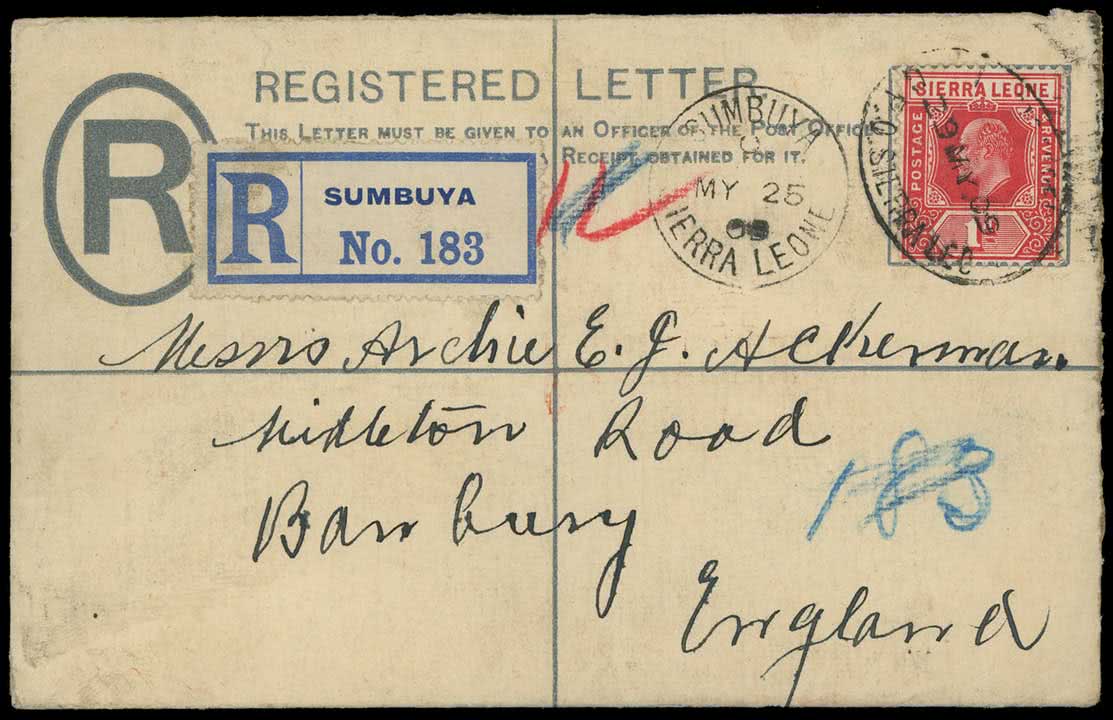 REGISTERED LETTER
THIS LETTER MUST BE GIVEN TO AN OFFICER OF THE POST OFFICE
RECEIPT OBTAINED FOR IT.
R
R
SUMBUYA
No. 183
SUMBUYA
MY 25
SIERRA LEONE
SIERRA LEONE
POSTAGE
1
29 MY 09
SIERRA LEO
Messrs Archie E. J. Ackerman
Midleton Road
Banbury
183
England